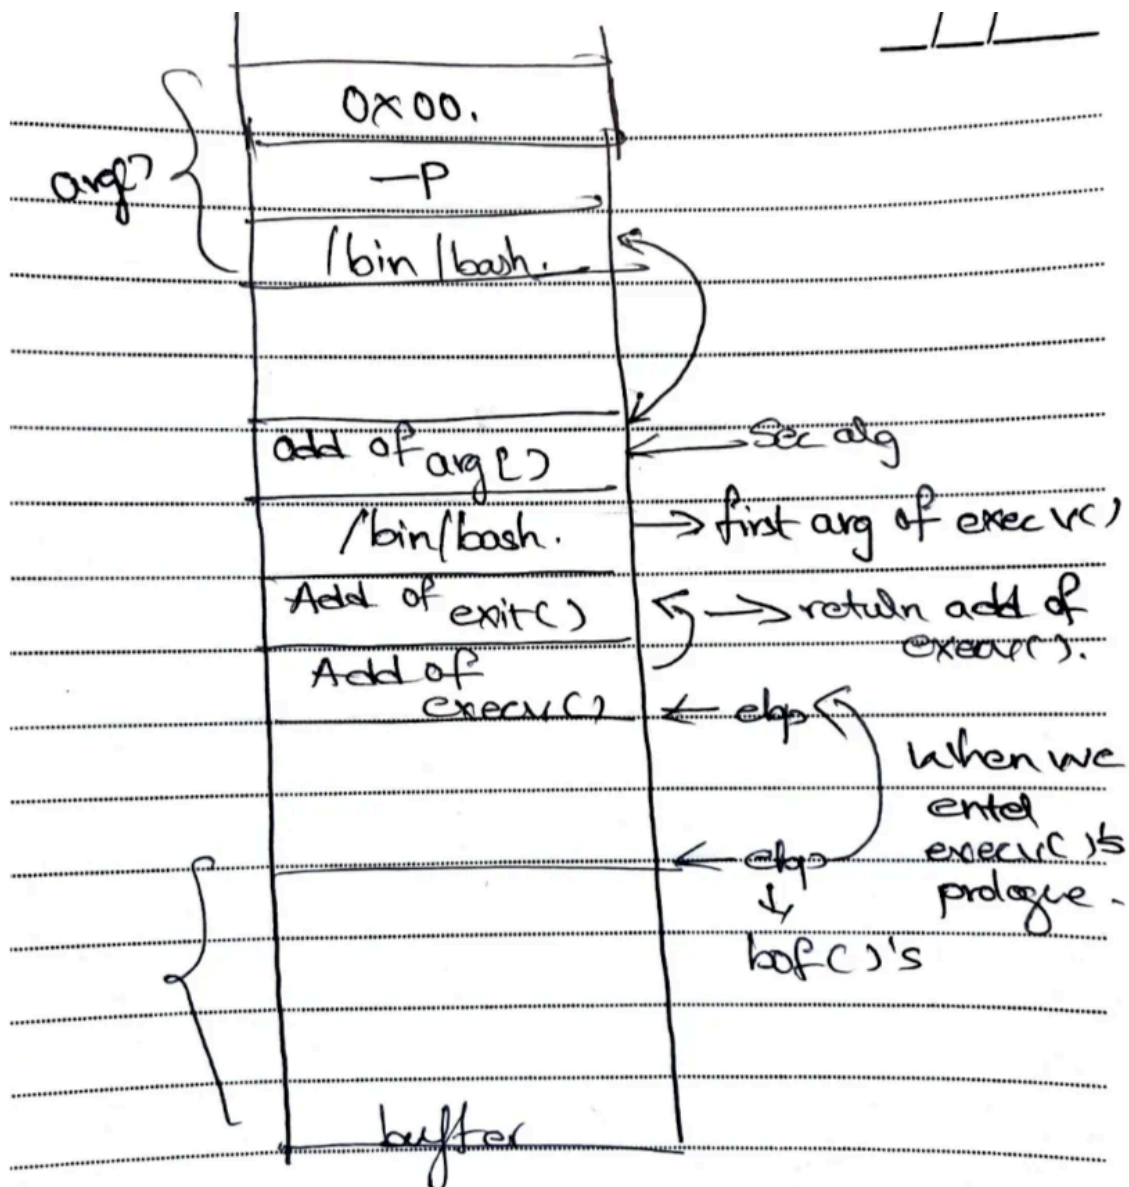 0x00.
arg[]
-P
/bin/bash.
add of arg[]
Sec alg
/bin/bash.
first arg of execv()
Add of exit()
return add of
execv().
Add of
execv()
ebp
When we
enter
execv()'s
prologue.
ebp
bof()'s
buffer